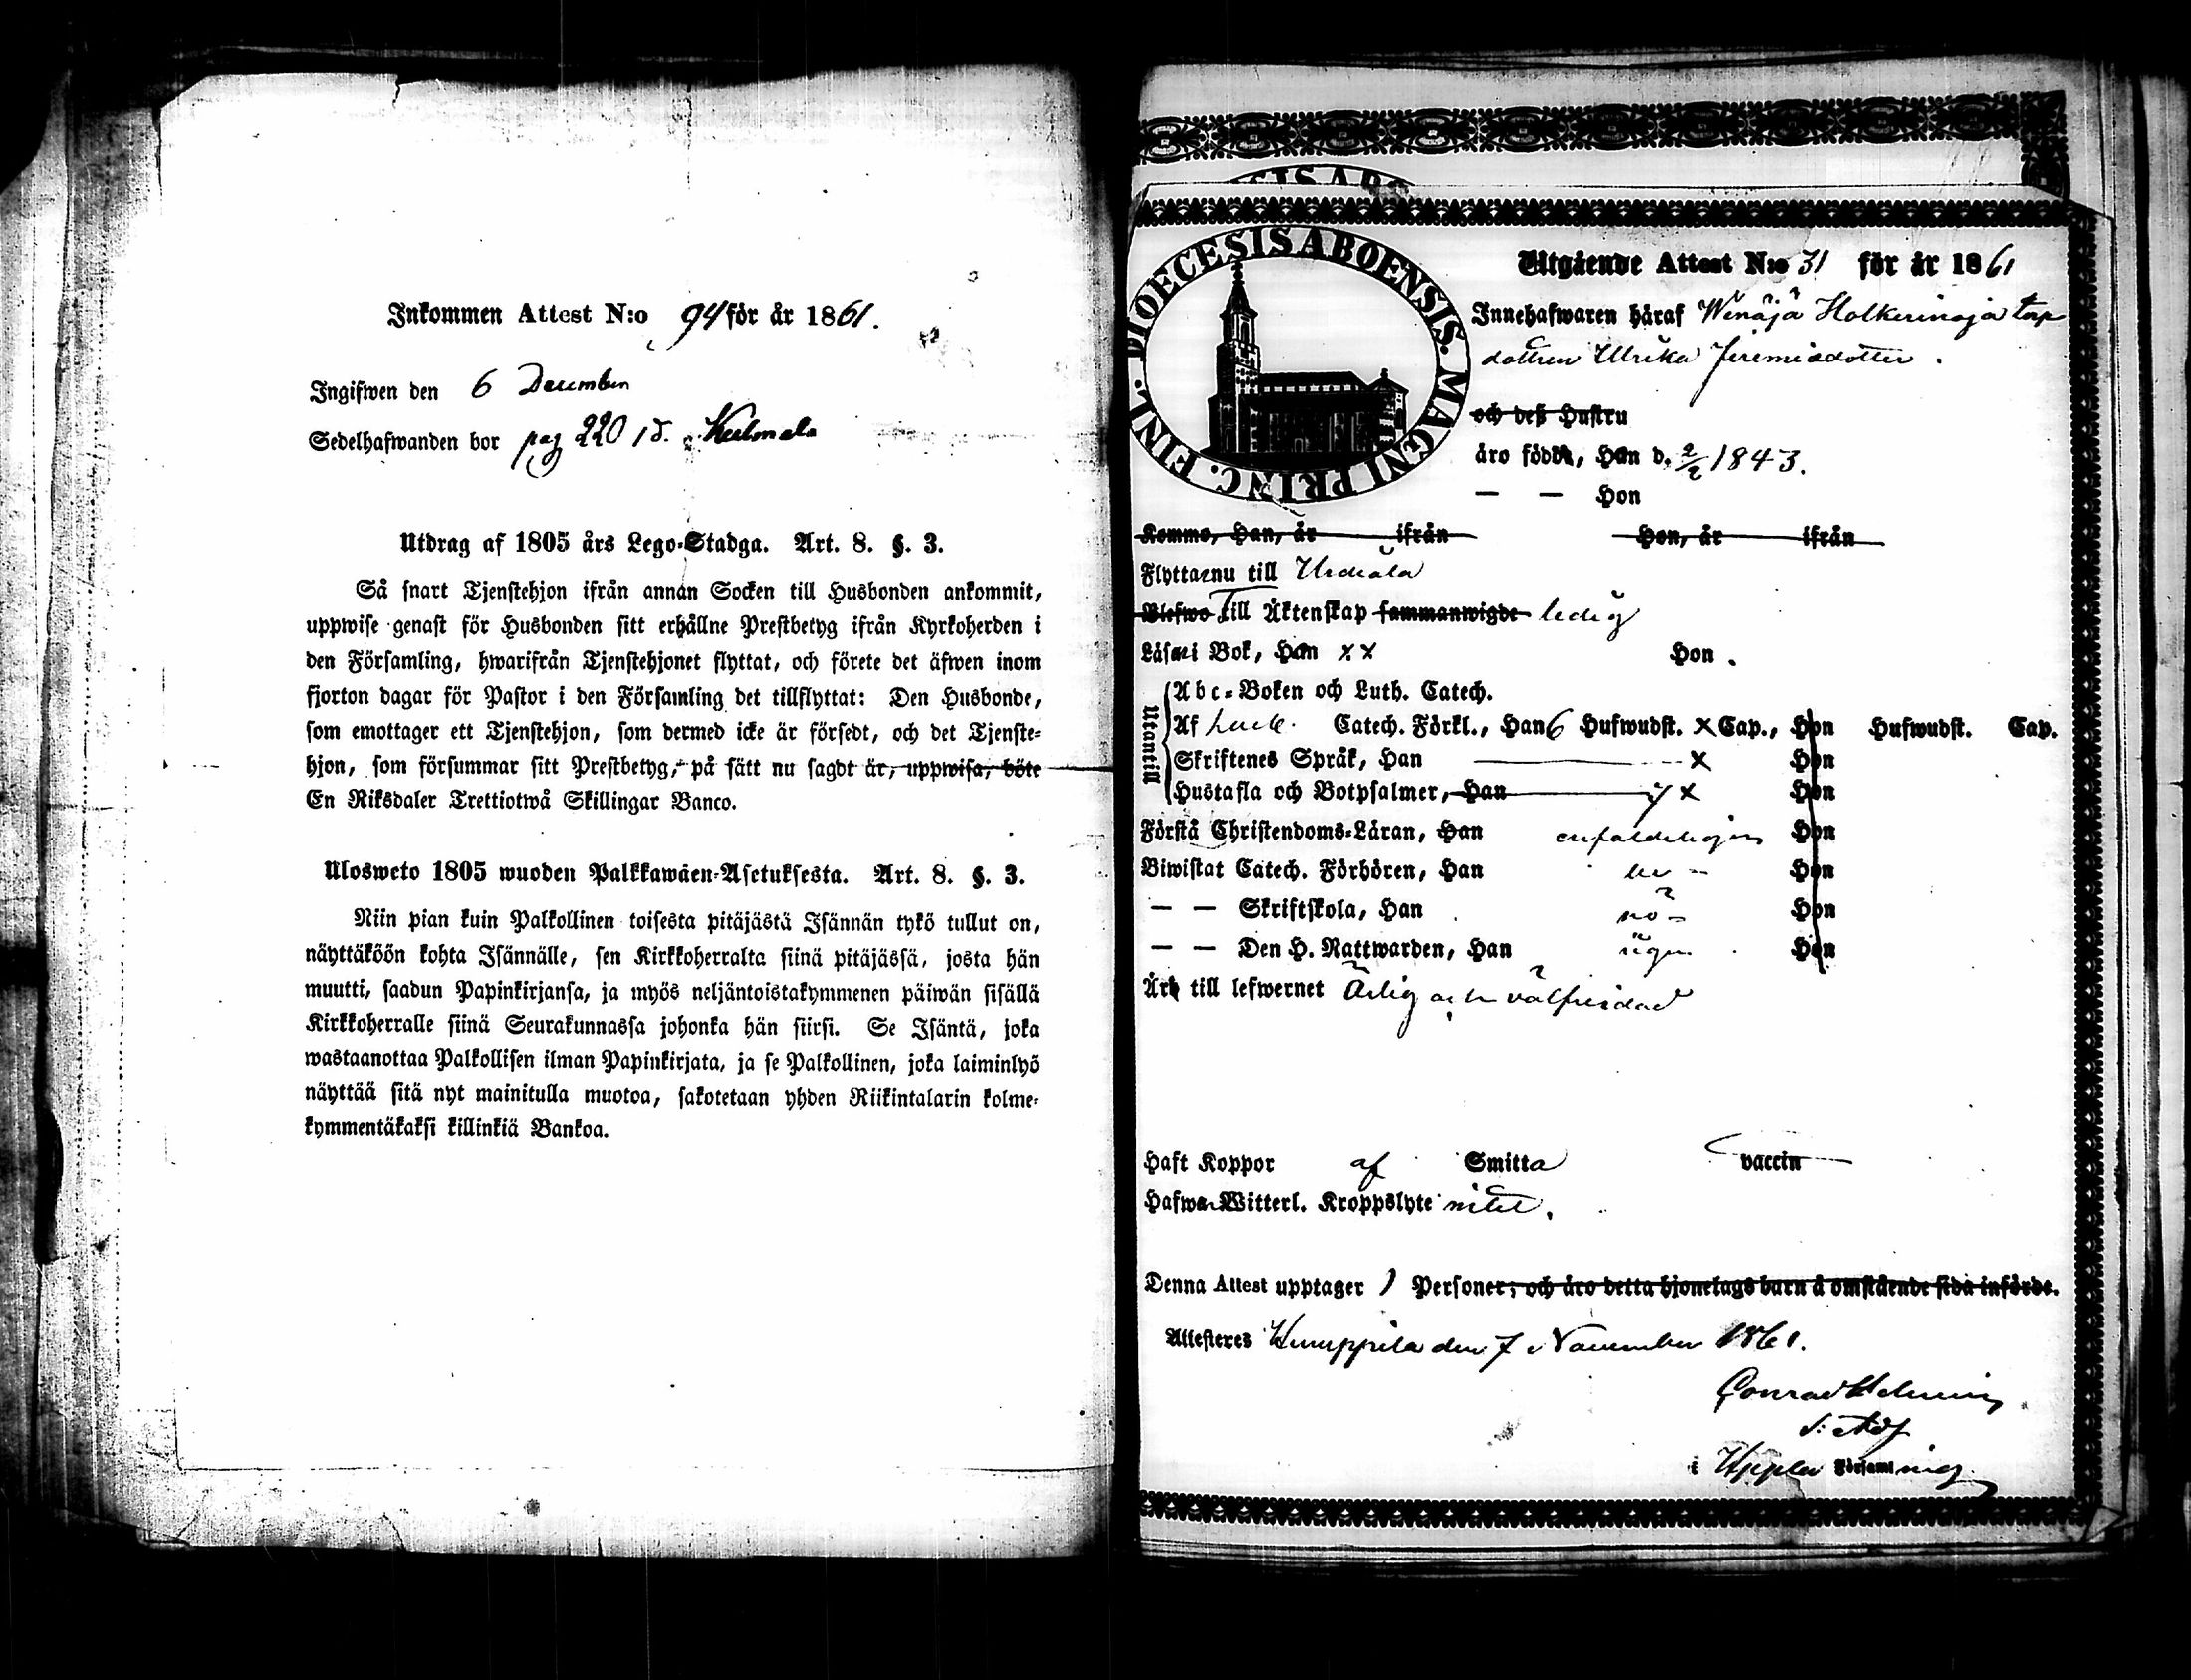 Inkommen Attest N:o 94 för år 1861.
Ingifwen den 6 December
Sedelhafwanden bor pag 220 Kulmala
Utdrag af 1805 års Lego-Stadga. Art. 8. §. 3.
Så snart Tjenstehjon ifrån annan Socken till Husbonden ankommit,
uppwise genast för Husbonden sitt erhållne Prestbetyg ifrån Kyrkoherden i
den Församling, hwarifrån Tjenstehjonet flyttat, och förete det äfwen inom
fjorton dagar för Pastor i den Församling det tillflyttat: Den Husbonde,
som emottager ett Tjenstehjon, som dermed icke är försedt, och det Tjenste-
hjon, som försummar sitt Prestbetyg, på sätt nu sagdt är, uppwisa, böte
En Riksdaler Trettiotwå Skillingar Banco.
Ulosweto 1805 wuoden Palkkawäen-Asetuksesta. Art. 8. §. 3.
Niin pian kuin Palkollinen toisesta pitäjästä Isännän tykö tullut on,
näyttäköön kohta Isännälle, sen Kirkkoherralta siinä pitäjässä, josta hän
muutti, saadun Papinkirjansa, ja myös neljäntoistakymmenen päiwän sisällä
Kirkkoherralle siinä Seurakunnassa johonka hän siirsi. Se Isäntä, joka
wastaanottaa Palkollisen ilman Papinkirjata, ja se Palkollinen, joka laiminlyö
näyttää sitä nyt mainitulla muotoa, sakotetaan yhden Riikintalarin kolme-
kymmentäkaksi killinkiä Bankoa.
DIOECESIS ABOENSIS. MAGNI PRINC. FINL.
Utgående Attest N:o 31 för år 1861
Innehafwaren häraf Wenäjä Holkerinoja torp
dottren Ulrika Jeremiedotter.
och deß Hustru
äro född, Han d. 2/2 1843.
— — Hon
Kommo, Han, år ifrån Hon, år ifrån
Flyttar nu till Urdiala
Blefwo Till Äktenskap sammanwigde ledig
Läsa i Bok, Han xx Hon
Utantill
Abc-Boken och Luth. Catech.
Af Catech. Förkl., Han 6 Hufwudst. x Cap., Hon Hufwudst. Cap.
Skriftenes Språk, Han x Hon
Hustafla och Botpsalmer, Han x Hon
Förstå Christendoms-Läran, Han enfaldeligen Hon
Biwistat Catech. Förhören, Han Hon
— — Skriftskola, Han Hon
— — Den H. Nattwarden, Han Hon
Är till lefwernet Ärlig och välfrejdad
Haft Koppor af Smitta vaccin
Hafwa Witterl. Kroppslyte intet.
Denna Attest upptager 1 Personer; och äro detta hjonelags barn å omstående sida införde.
Attesteres Humppila den 7 November 1861.
Conrad
i Församling